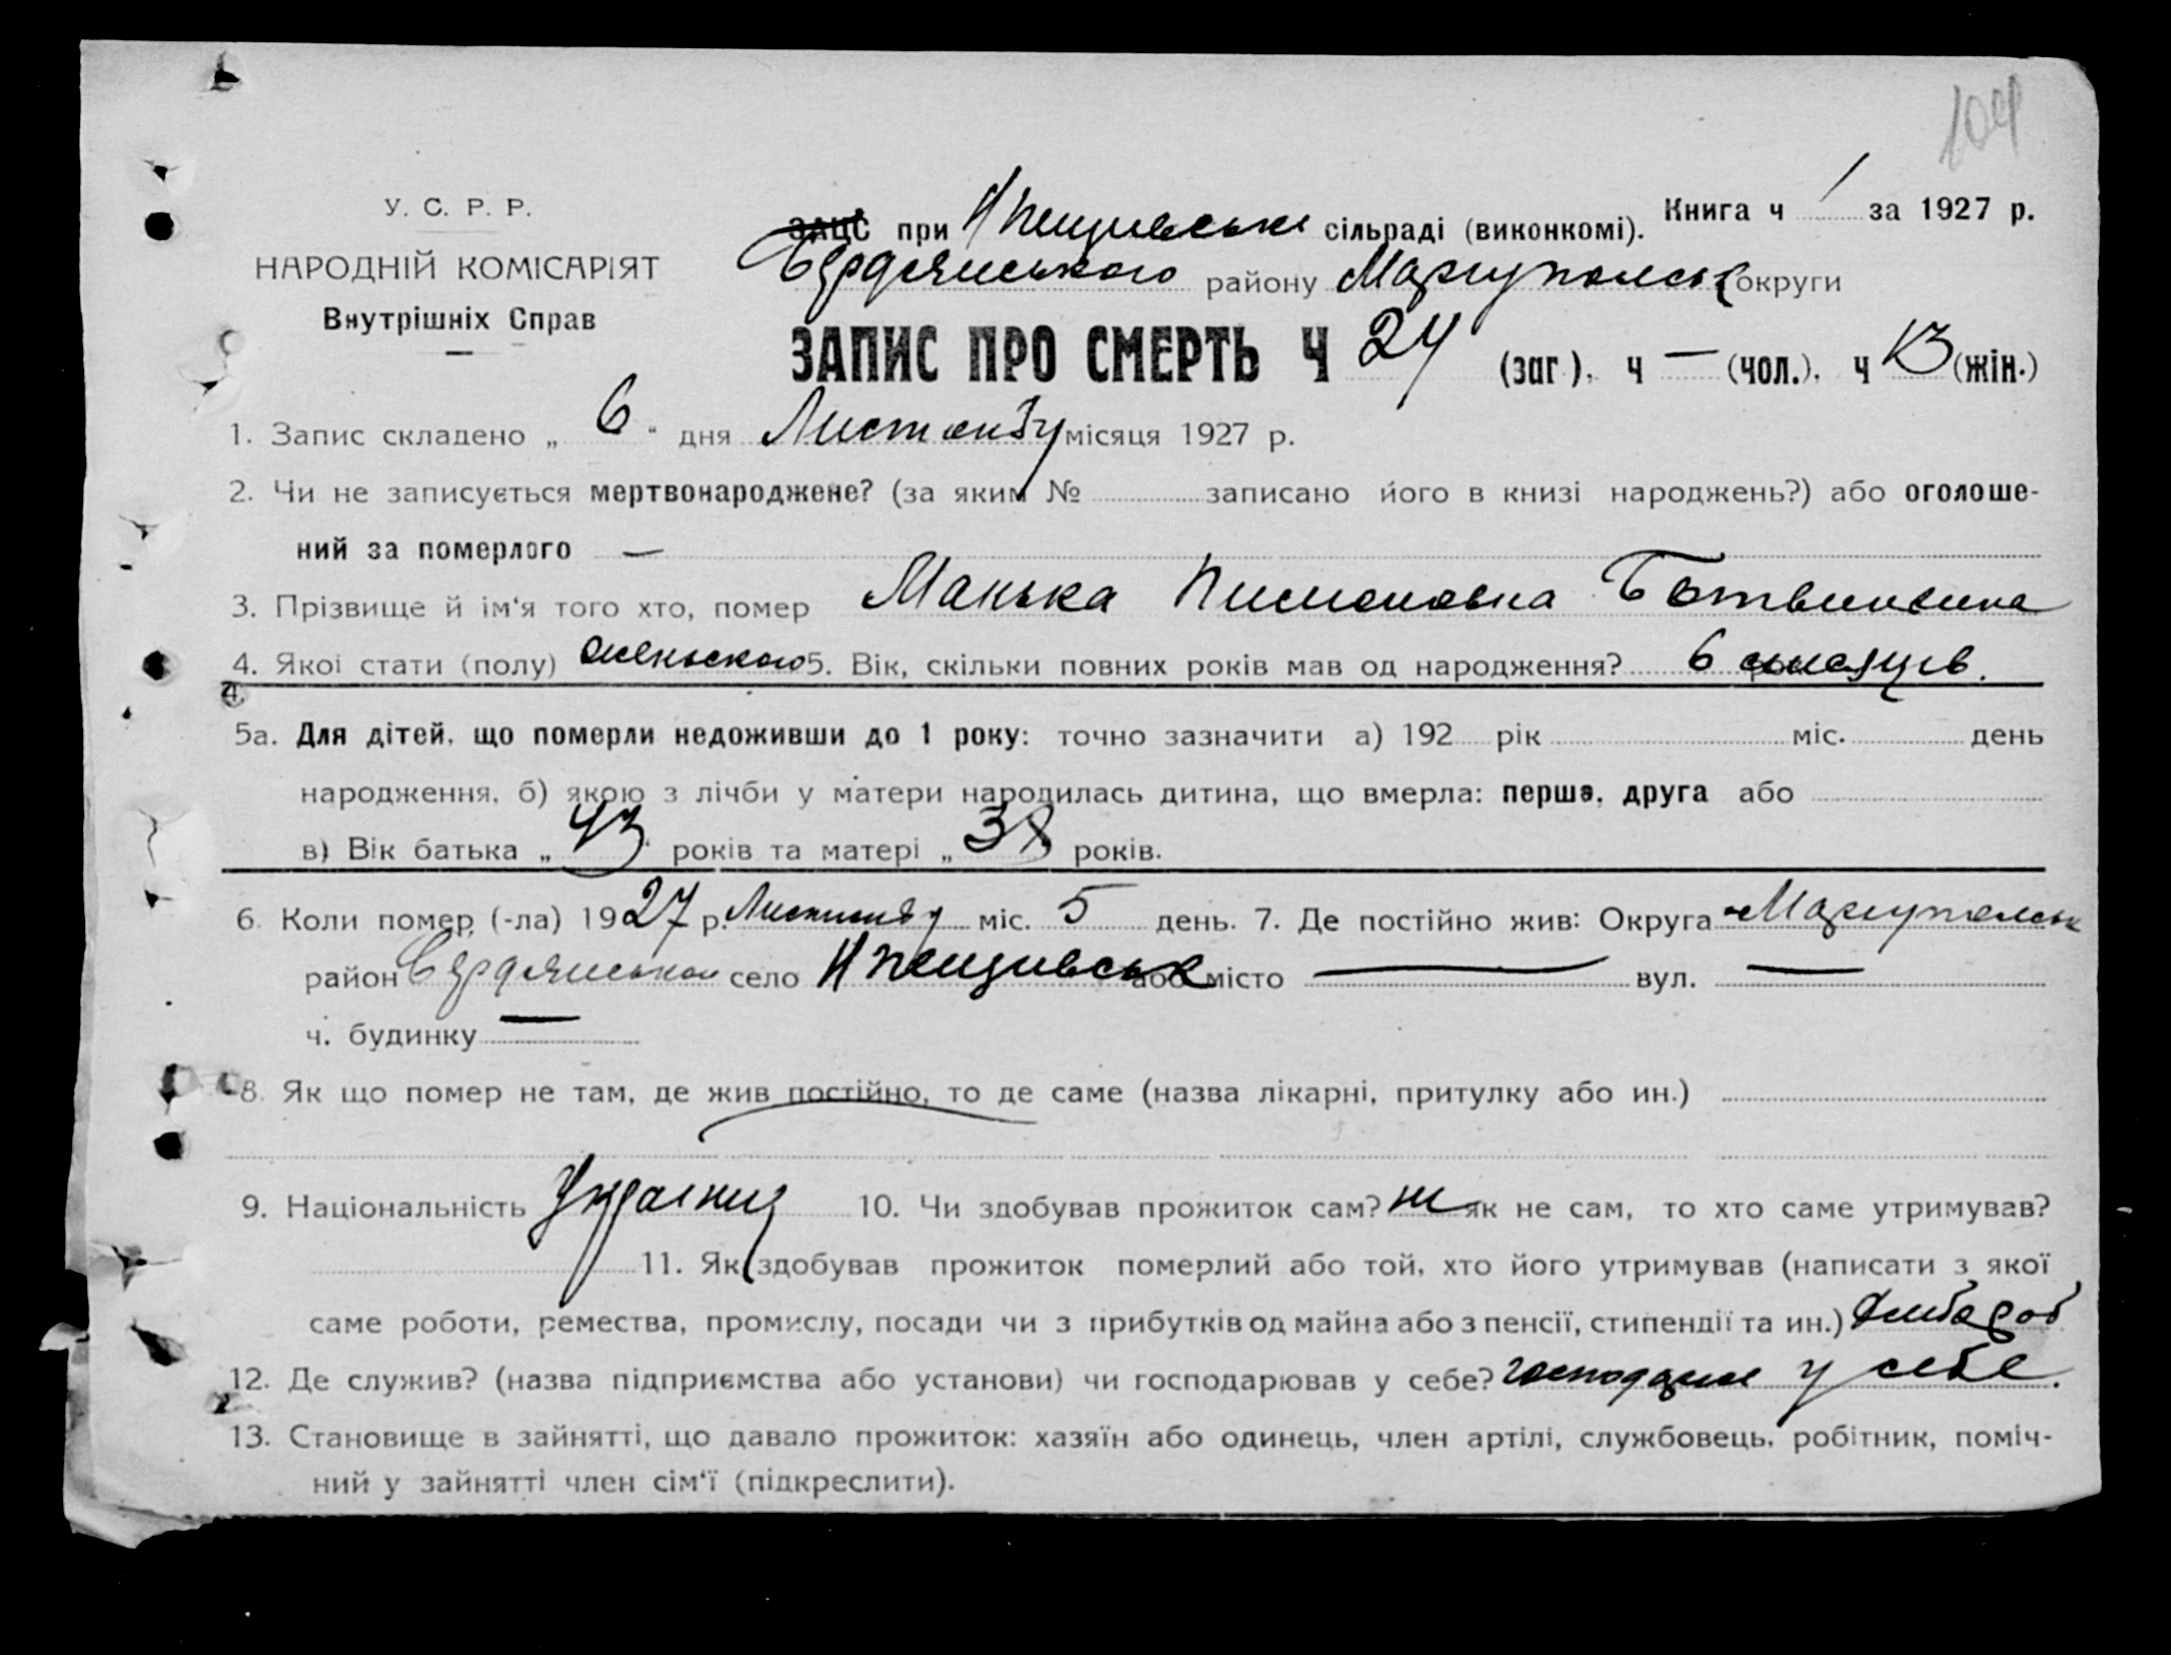 104
У. С. Р. Р.
НАРОДНІЙ КОМІСАРІЯТ
Внутрішніх Справ
Книга ч 1 за 1927 р.
ЗАЦС при сільраді (виконкомі).
Бердянського району Маріупольськ округи
ЗАПИС ПРО СМЕРТЬ Ч 24 (заг.), ч — (чол.), ч 13 (жін.)
1. Запис складено „ 6 " дня Листопаду місяця 1927 р.
2. Чи не записується мертвонароджене? (за яким № записано його в книзі народжень?) або оголоше-
ний за померлого —
3. Прізвище й ім'я того хто, помер Манька Пименовна
4. Якої стати (полу) женьского 5. Вік, скільки повних років мав од народження? 6 місяців.
5а. Для дітей, що померли недоживши до 1 року: точно зазначити а) 192 рік міс. день
народження, б) якою з лічби у матери народилась дитина, що вмерла: перша, друга або
в) Вік батька „ 43 років та матері „ 38 років.
6. Коли помер (-ла) 1927 р. Листопаду міс. 5 день. 7. Де постійно жив: Округа Маріупольськ
район Бердянському село або місто — вул. —
ч. будинку —
8. Як що помер не там, де жив постійно, то де саме (назва лікарні, притулку або ин.)
9. Національність 10. Чи здобував прожиток сам? ні як не сам, то хто саме утримував?
11. Як здобував прожиток померлий або той, хто його утримував (написати з якої
саме роботи, ремества, промислу, посади чи з прибутків од майна або з пенсії, стипендії та ин.) хлібороб
12. Де служив? (назва підприємства або установи) чи господарював у себе? у себе.
13. Становище в зайнятті, що давало прожиток: хазяїн або одинець, член артілі, службовець, робітник, поміч-
ний у зайнятті член сім'ї (підкреслити).